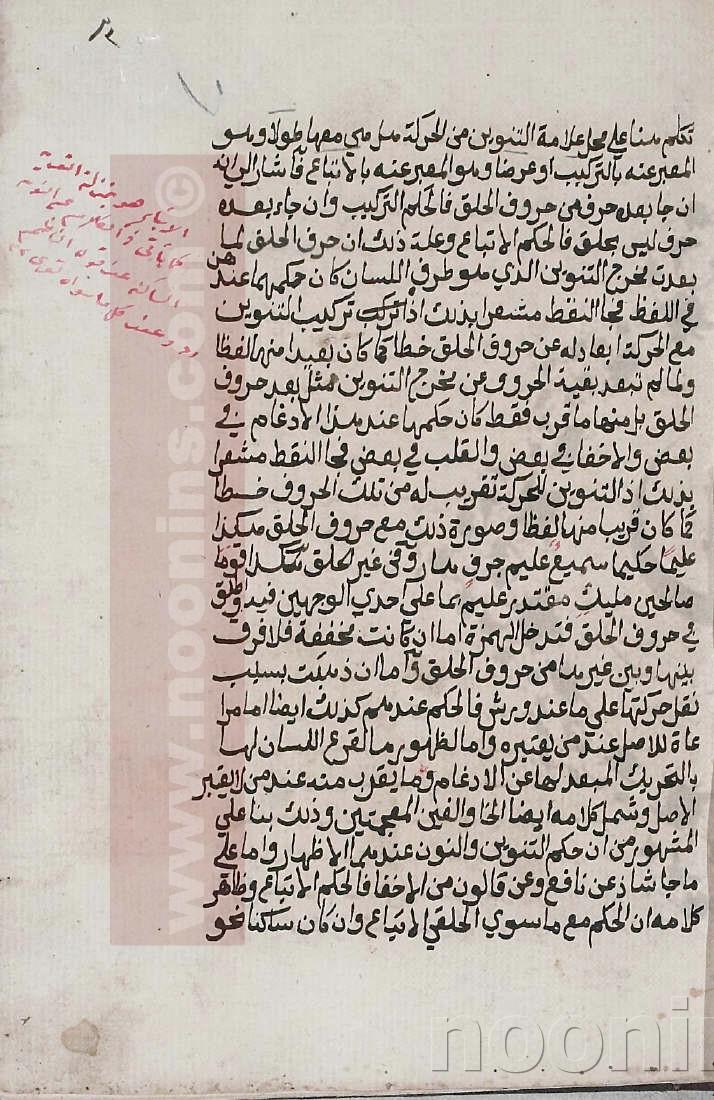 تكلم هنا على محل علامة التنوين من الحركة هل هي معها طولا وهو
المعبر عنه بالتركيب او عرضا وهو المعبر عنه بالاتباع فأشار الى انه
ان جا بعده حرف من حروف الحلق فالحكم التركيب وان جاء بعده
حرف ليس بحلق فالحكم الاتباع وعلة ذلك ان حرف الحلق لما
بعدت مخرج التنوين الذي هو طرف اللسان كان حكمهما عندهن
في اللفظ فجا النقط مشعرا بذلك اذ تركب تركيب التنوين
مع الحركة ابعاد له عن حروف الحلق خطا كما كان بعيدا منها لفظا
ولما لم تبعد بقية الحروف عن مخرج التنوين مثل بعد حروف
الحلق بل منها ما قرب فقط كان حكمها عند هذا الادغام في
بعض والاخفا في بعض والقلب في بعض فجا النقط مشعرا
بذلك اذ التنوين للحركة تقريب له من تلك الحروف خطا
كما كان قريبا منها لفظا وصورة ذلك مع حروف الحلق هكذا
عليما حكيما سميع عليم جرف هار وفي غير الحلق هكذا قوما
صالحين مليك مقتدر عليم بما على احدي الوجهين فيه واطلق
في حروف الحلق فتدخل الهمزة اما ان كانت مخففة فلا فرق
بينها وبين غيرها من حروف الحلق واما ان ذهبت بسبب
نقل حركتها علي ما عند ورش فالحكم عندهم كذلك ايضا اما مرا
عاة للاصل عند من يعتبره واما لظهورها لقرع اللسان لها
بالتحريك المبعد لها عن الادغام وما يقرب منه عند من لا يعتبر
الاصل وشمل كلامه ايضا الخا والغين المعجمتين وذلك بنا علي
المشهور من ان حكم التنوين والنون عندهما الاظهار واما على
ما جا شاذ عن نافع وعن قالون من الاخفا فالحكم الاتباع وظاهر
كلامه ان الحكم مع ما سوي الحلقي الاتباع وان كان ساكنا نحو
www.noonins.com ©
noonin